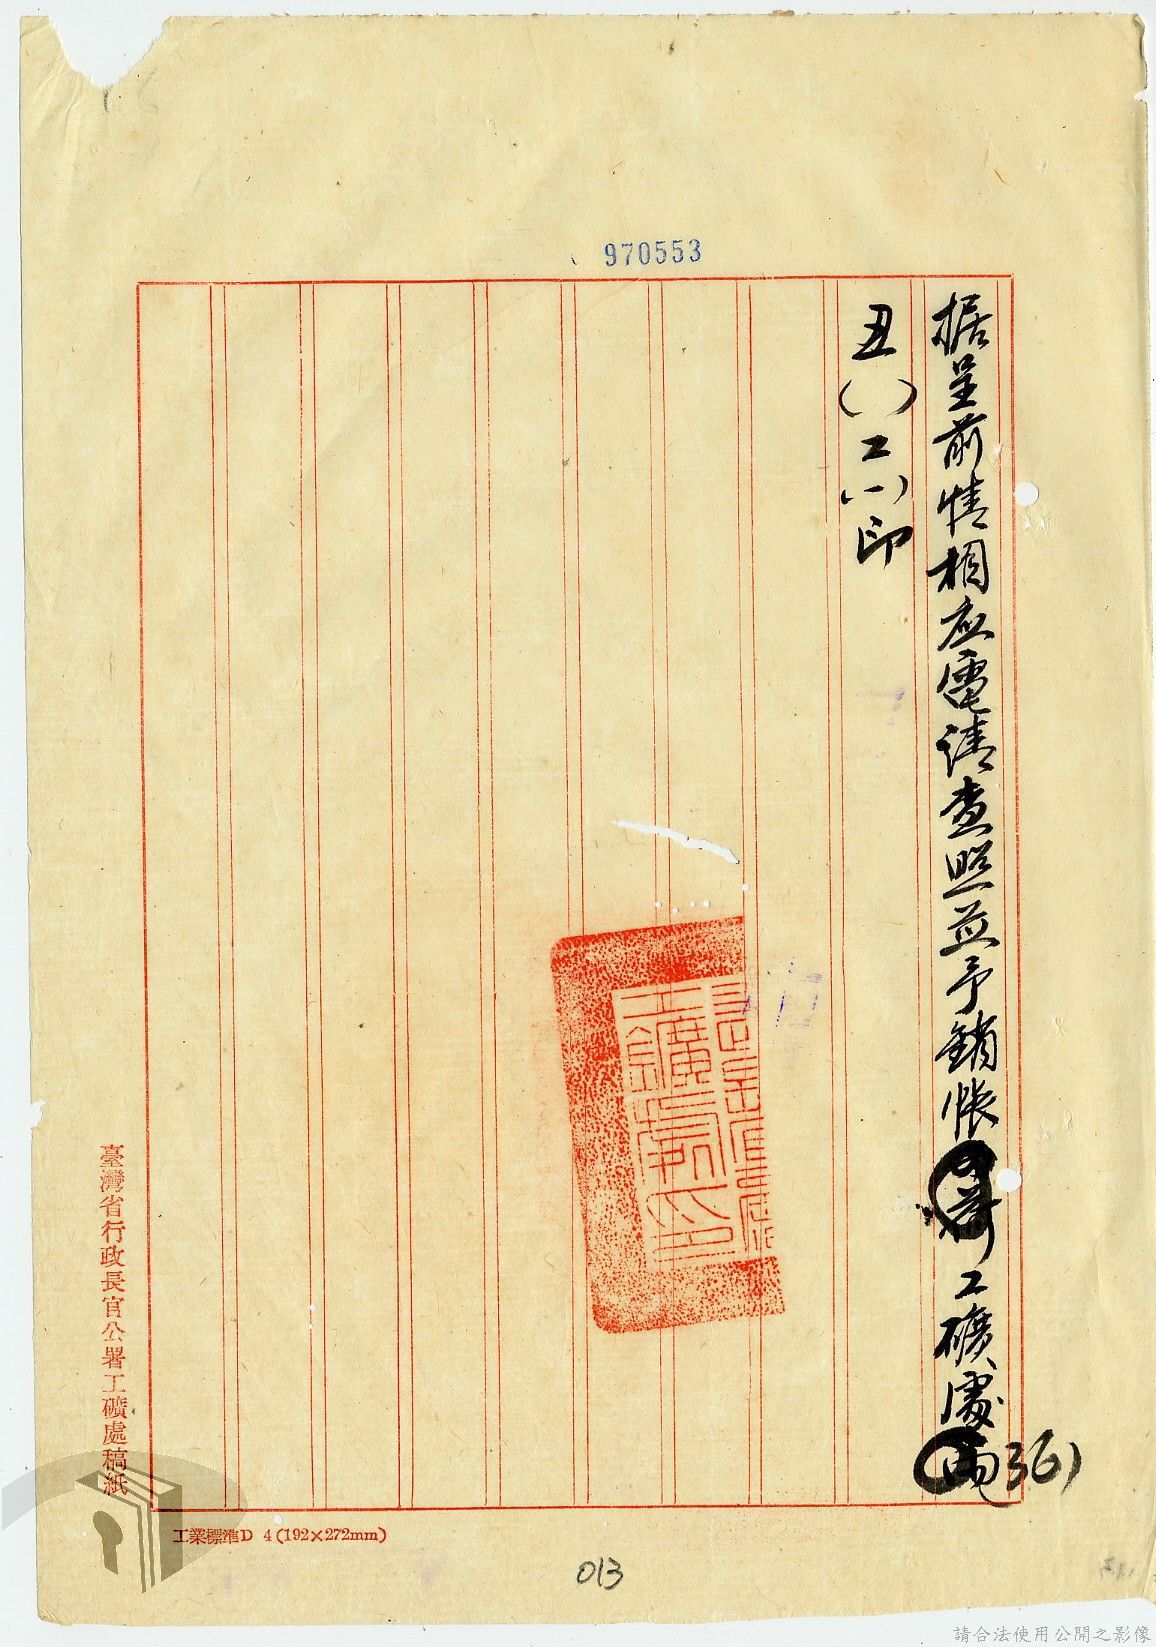 970553
据呈前情相应電請查照並予銷帳
工礦處
(36)
丑( )工(一)印
臺灣省行政長官公署工礦處稿紙
工業標準D 4(192×272mm)
013
請合法使用公開之影像